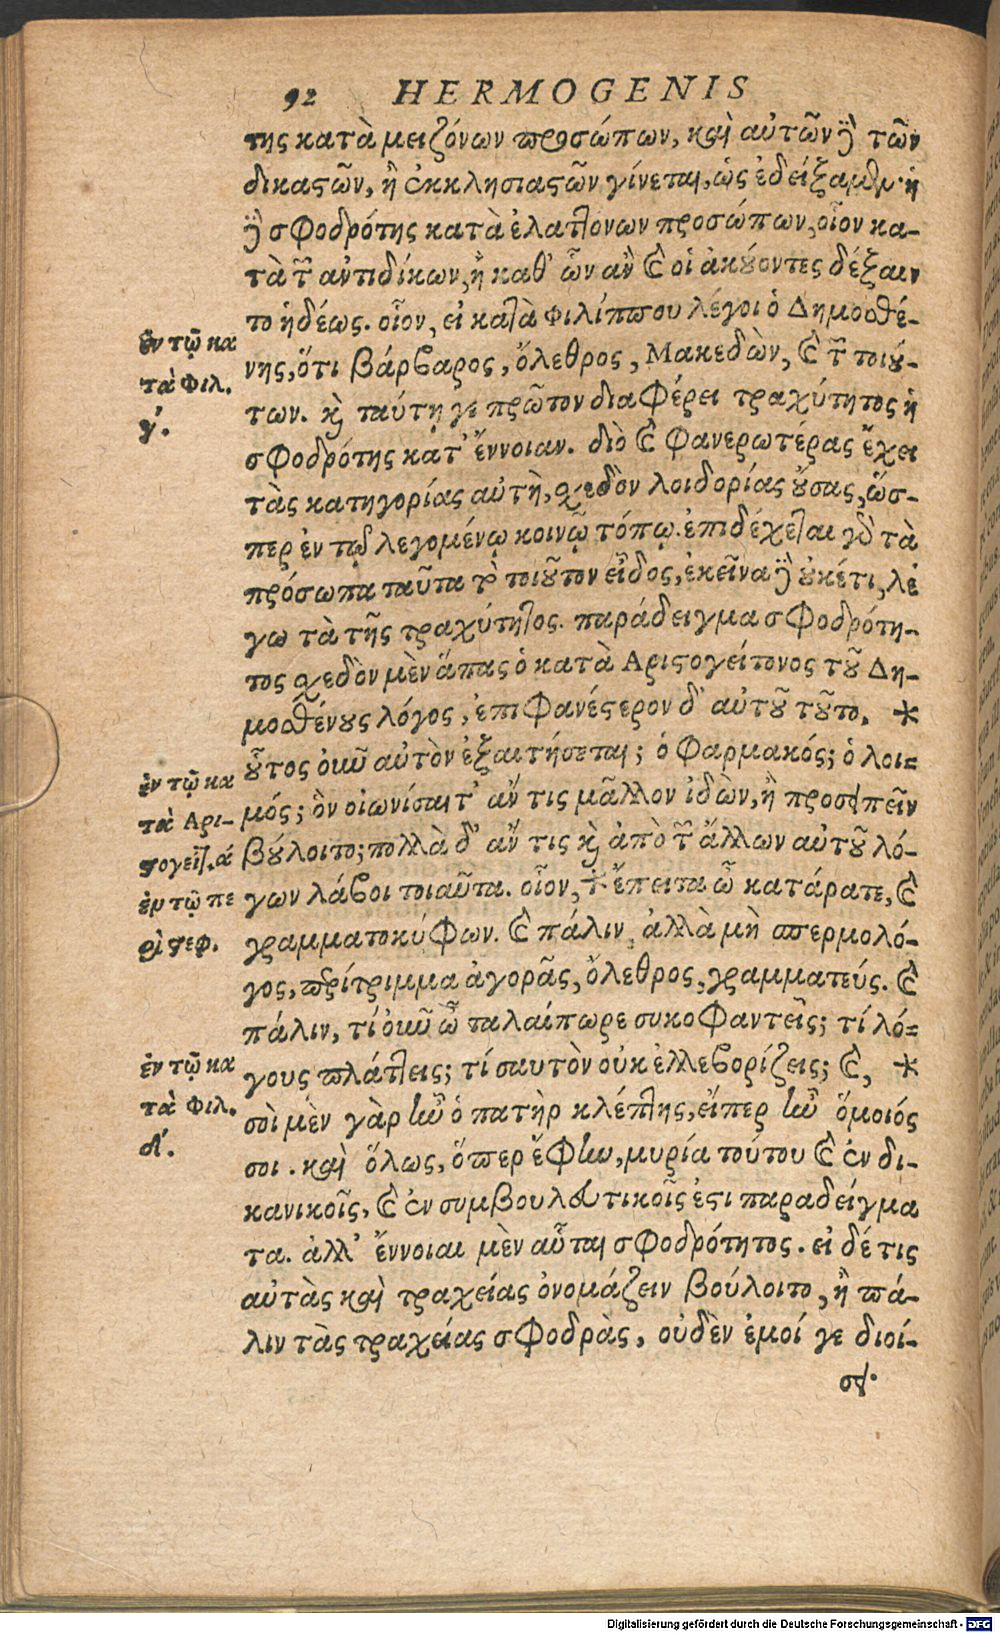 92 HERMOGENIS
της κατὰ μειζόνων προσώπων, καὶ αὐτῶν δὲ τῶν
δικαϛῶν, ἢ ἐκκλησιαϛῶν γίνεται, ὡς ἐδείξαμεν· ἡ
δὲ σφοδρότης κατὰ ἐλαττόνων προσώπων, οἷον κα-
τὰ τῶν ἀντιδίκων, ἢ καθ' ὧν ἂν καὶ οἱ ἀκούοντες δέξαιν
το ἡδέως. οἷον, εἰ κατὰ Φιλίππου λέγοι ὁ Δημοσθέ-
ἐν τῷ κα
νης, ὅτι βάρβαρος, ὄλεθρος, Μακεδὼν, καὶ τῶν τοιού-
τὰ Φιλ.
των. καὶ ταύτῃ γε πρῶτον διαφέρει τραχύτητος ἡ
γ΄.
σφοδρότης κατ' ἔννοιαν. διὸ καὶ φανερωτέρας ἔχει
τὰς κατηγορίας αὐτὴ, σχεδὸν λοιδορίας οὔσας, ὥσ-
περ ἐν τῷ λεγομένῳ κοινῷ τόπῳ. ἐπιδέχεται γὸ τὰ
πρόσωπα ταῦτα τὸ τοιοῦτον εἶδος, ἐκεῖνα δὲ οὐκέτι, λέ
γω τὰ τῆς τραχύτητος. παράδειγμα σφοδρότη-
τος σχεδὸν μὲν ἅπας ὁ κατὰ Αριϛογείτονος τοῦ Δη-
μοσθένους λόγος, ἐπιφανέϛερον δ' αὐτοῦ τοῦτο. *
οὗτος οὖν αὐτὸν ἐξαιτήσεται; ὁ φαρμακός; ὁ λοι-
ἐν τῷ κα
μός; ὃν οἰωνίσαιτ' ἄν τις μᾶλλον ἰδὼν, ἢ προσειπεῖν
τὰ Αρι-
βούλοιτο; πολλὰ δ' ἄν τις καὶ ἀπὸ τῶν ἄλλων αὐτοῦ λό-
ϛογείτ. ά
γων λάβοι τοιαῦτα. οἷον, † ἔπειτα ὦ κατάρατε, καὶ
ἐν τῷ πε
γραμματοκύφων. καὶ πάλιν, ἀλλὰ μὴ σπερμολό-
ρὶ ϛεφ.
γος, περίτριμμα ἀγορᾶς, ὄλεθρος, γραμματεύς. καὶ
πάλιν, τί οὖν ὦ ταλαίπωρε συκοφαντεῖς; τί λό-
ἐν τῷ κα
γους πλάττεις; τί σαυτὸν οὐκ ἐλλεβορίζεις; καὶ, *
τὰ Φιλ.
σοὶ μὲν γὰρ ἦν ὁ πατὴρ κλέπτης, εἴπερ ἦν ὅμοιός
δ΄.
σοι. καὶ ὅλως, ὅπερ ἔφην, μυρία τούτου καὶ ἐν δι-
κανικοῖς, καὶ ἐν συμβουλευτικοῖς ἐϛι παραδείγμα
τα. ἀλλ' ἔννοιαι μὲν αὗται σφοδρότητος. εἰ δέ τις
αὐτὰς καὶ τραχείας ὀνομάζειν βούλοιτο, ἢ πά-
λιν τὰς τραχείας σφοδρὰς, οὐδὲν ἐμοί γε διοί-
σει·
Digitalisierung gefördert durch die Deutsche Forschungsgemeinschaft - DFG